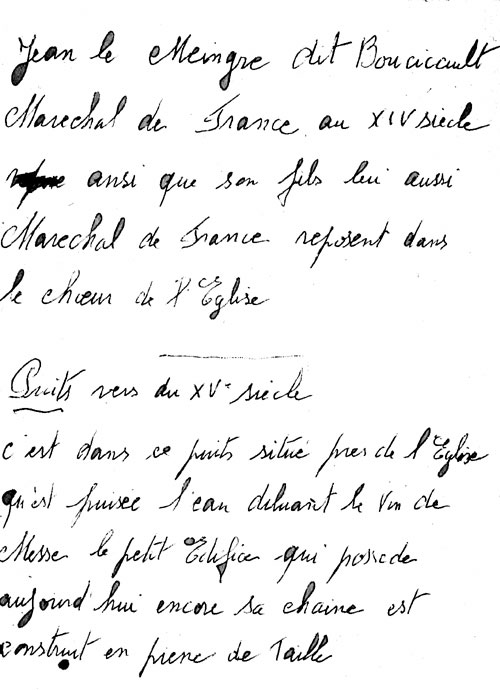 Jean le Meingre dit Boucicault
Marechal de France au XIV siècle
ansi que son fils lui aussi
Marechal de France reposent dans
le chœur de l'Eglise
Puits vers du XVe siècle
c'est dans ce puits situé pres de l'Eglise
qu'est puisée l'eau diluant le vin de
Messe le petit Edifice qui possede
aujourd'hui encore sa chaine est
construit en pierre de Taille